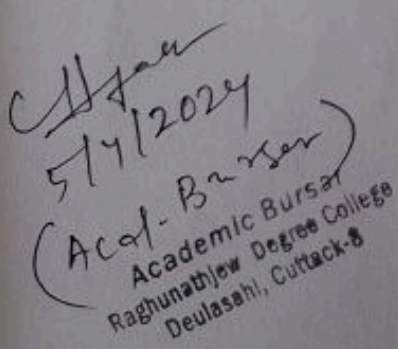 5/4/2024
(Acad. Bursar)
Academic Bursar
Raghunathjew Degree College
Deulasahi, Cuttack-8